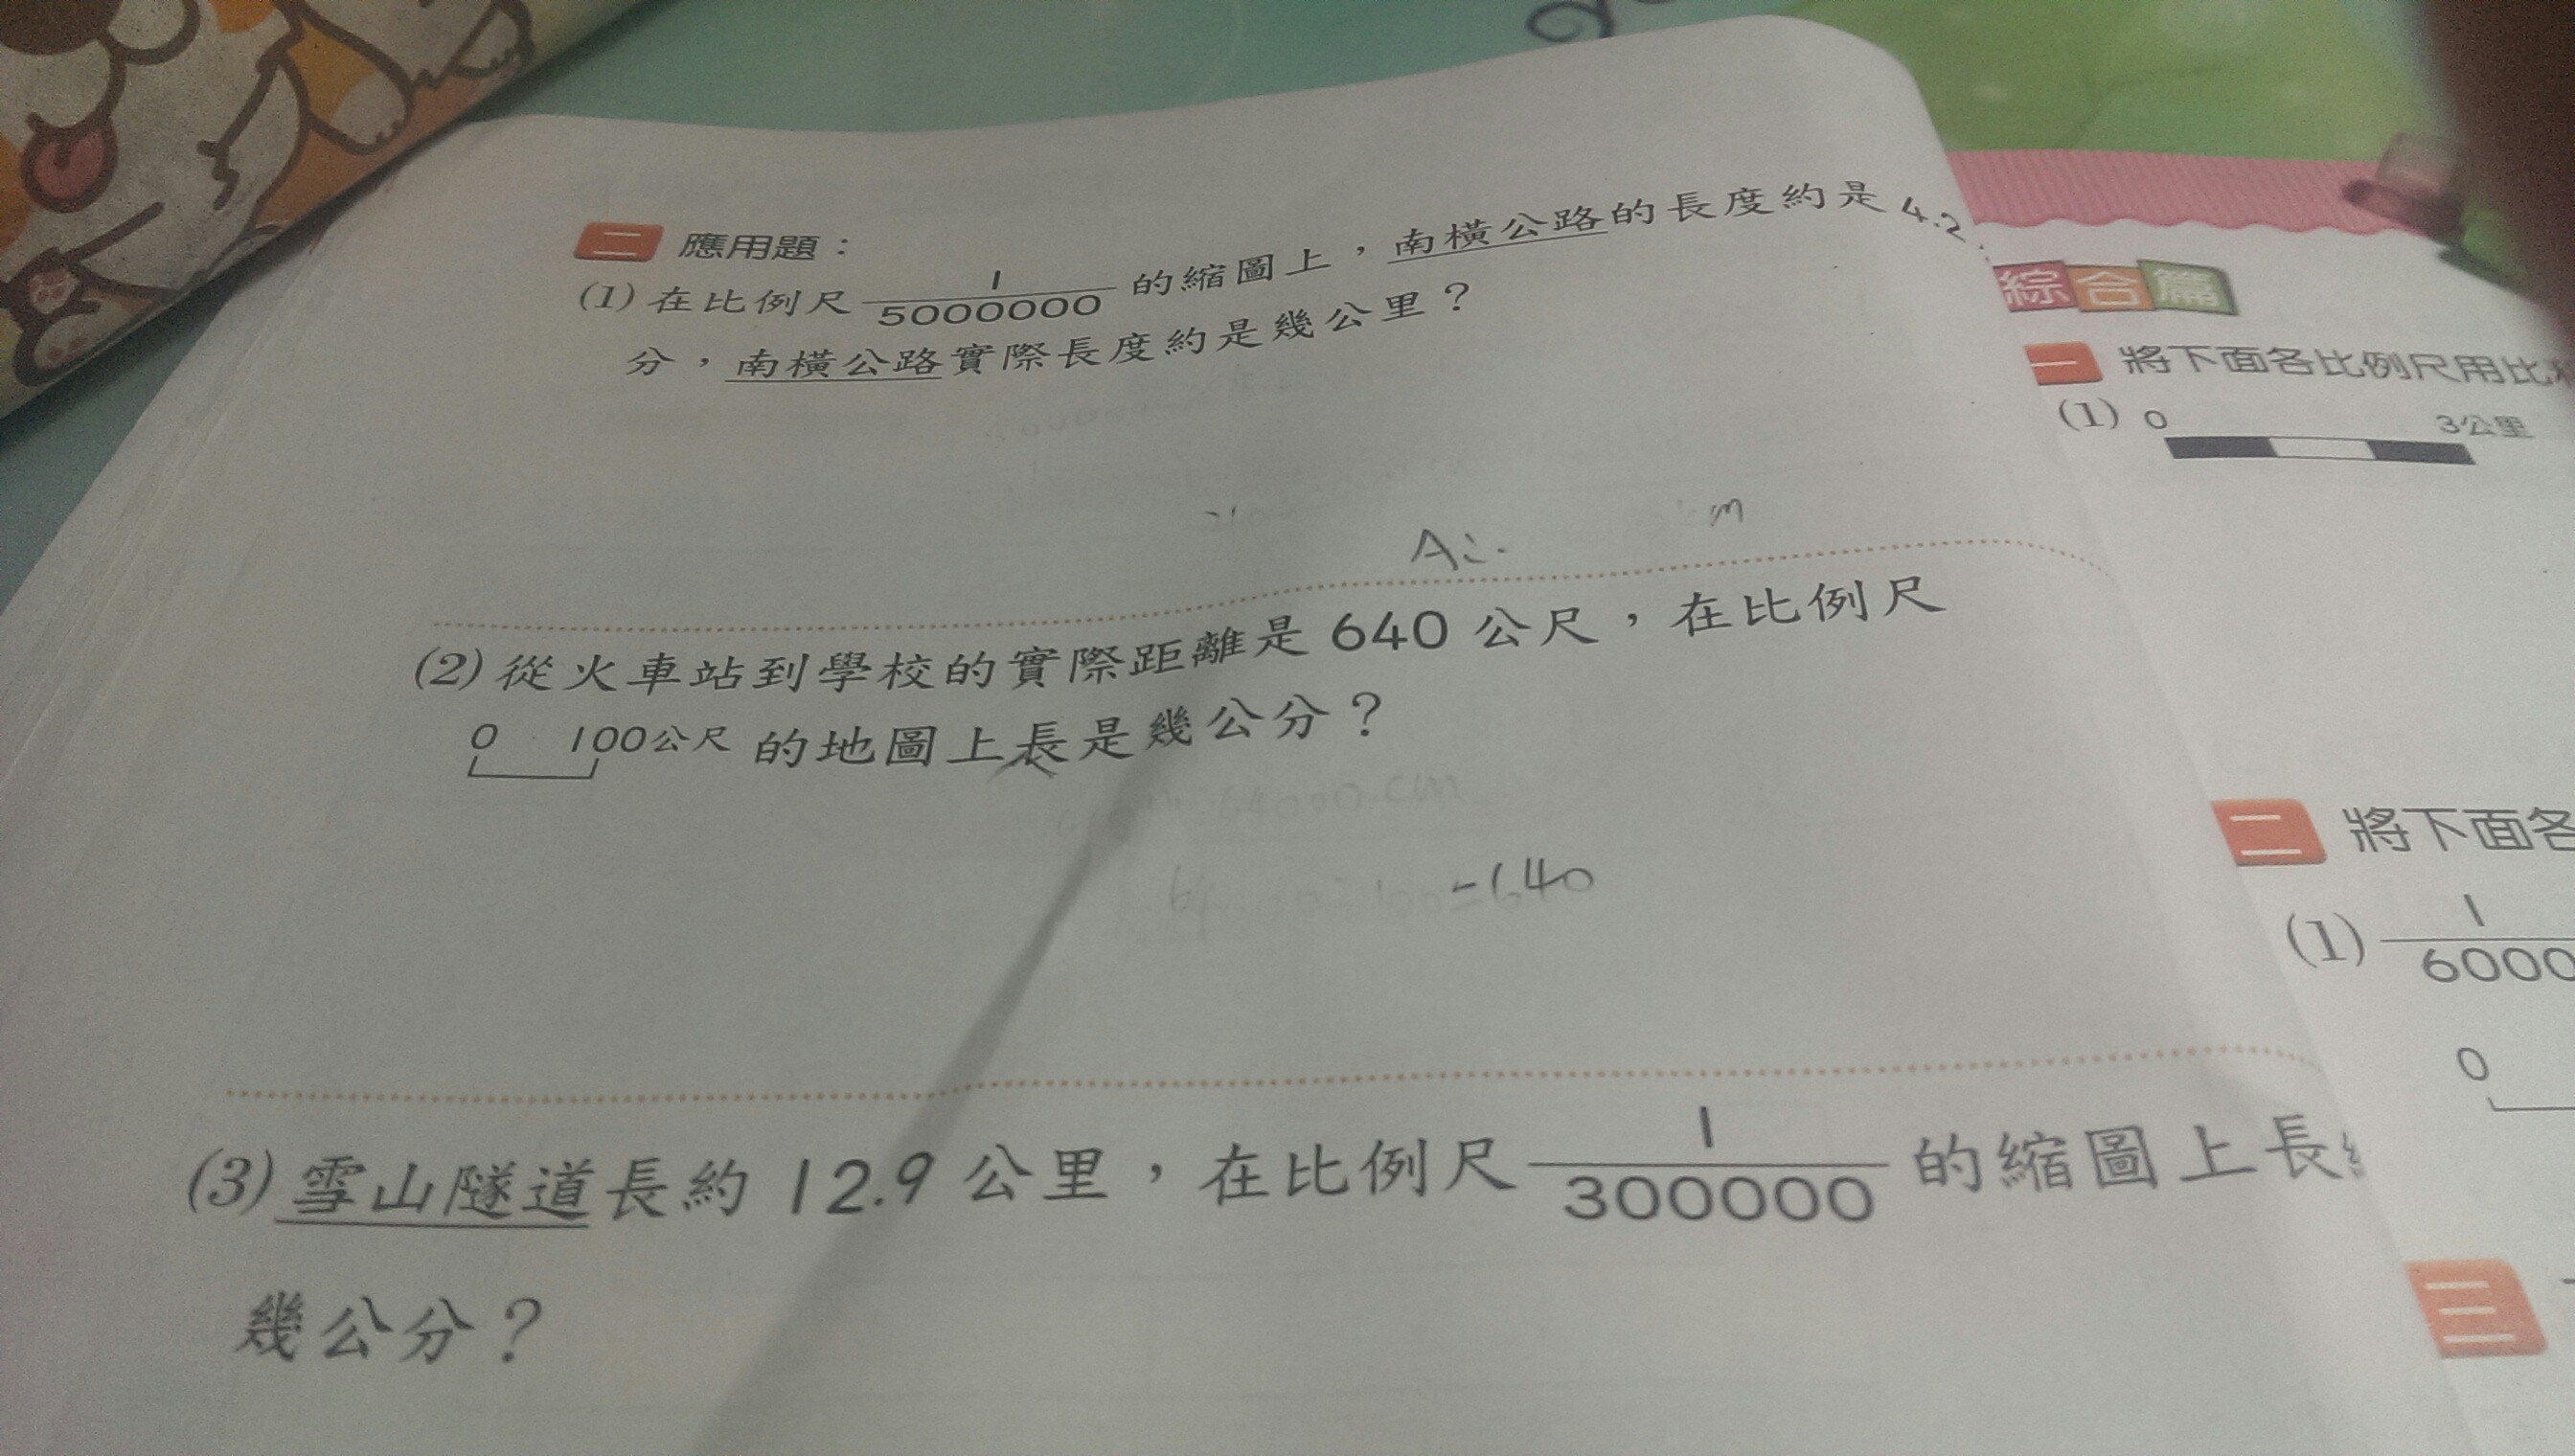 二 應用題：
(1) 在比例尺 1/5000000 的縮圖上，南橫公路的長度約是 4.2
分，南橫公路實際長度約是幾公里？
A:.
m
(2) 從火車站到學校的實際距離是 640 公尺，在比例尺
0 100公尺 的地圖上長是幾公分？
=640
(3) 雪山隧道長約 12.9 公里，在比例尺 1/300000 的縮圖上長
幾公分？
綜合篇
一 將下面各比例尺用比
(1) 0 3公里
二 將下面各
(1) 1/6000
0
三